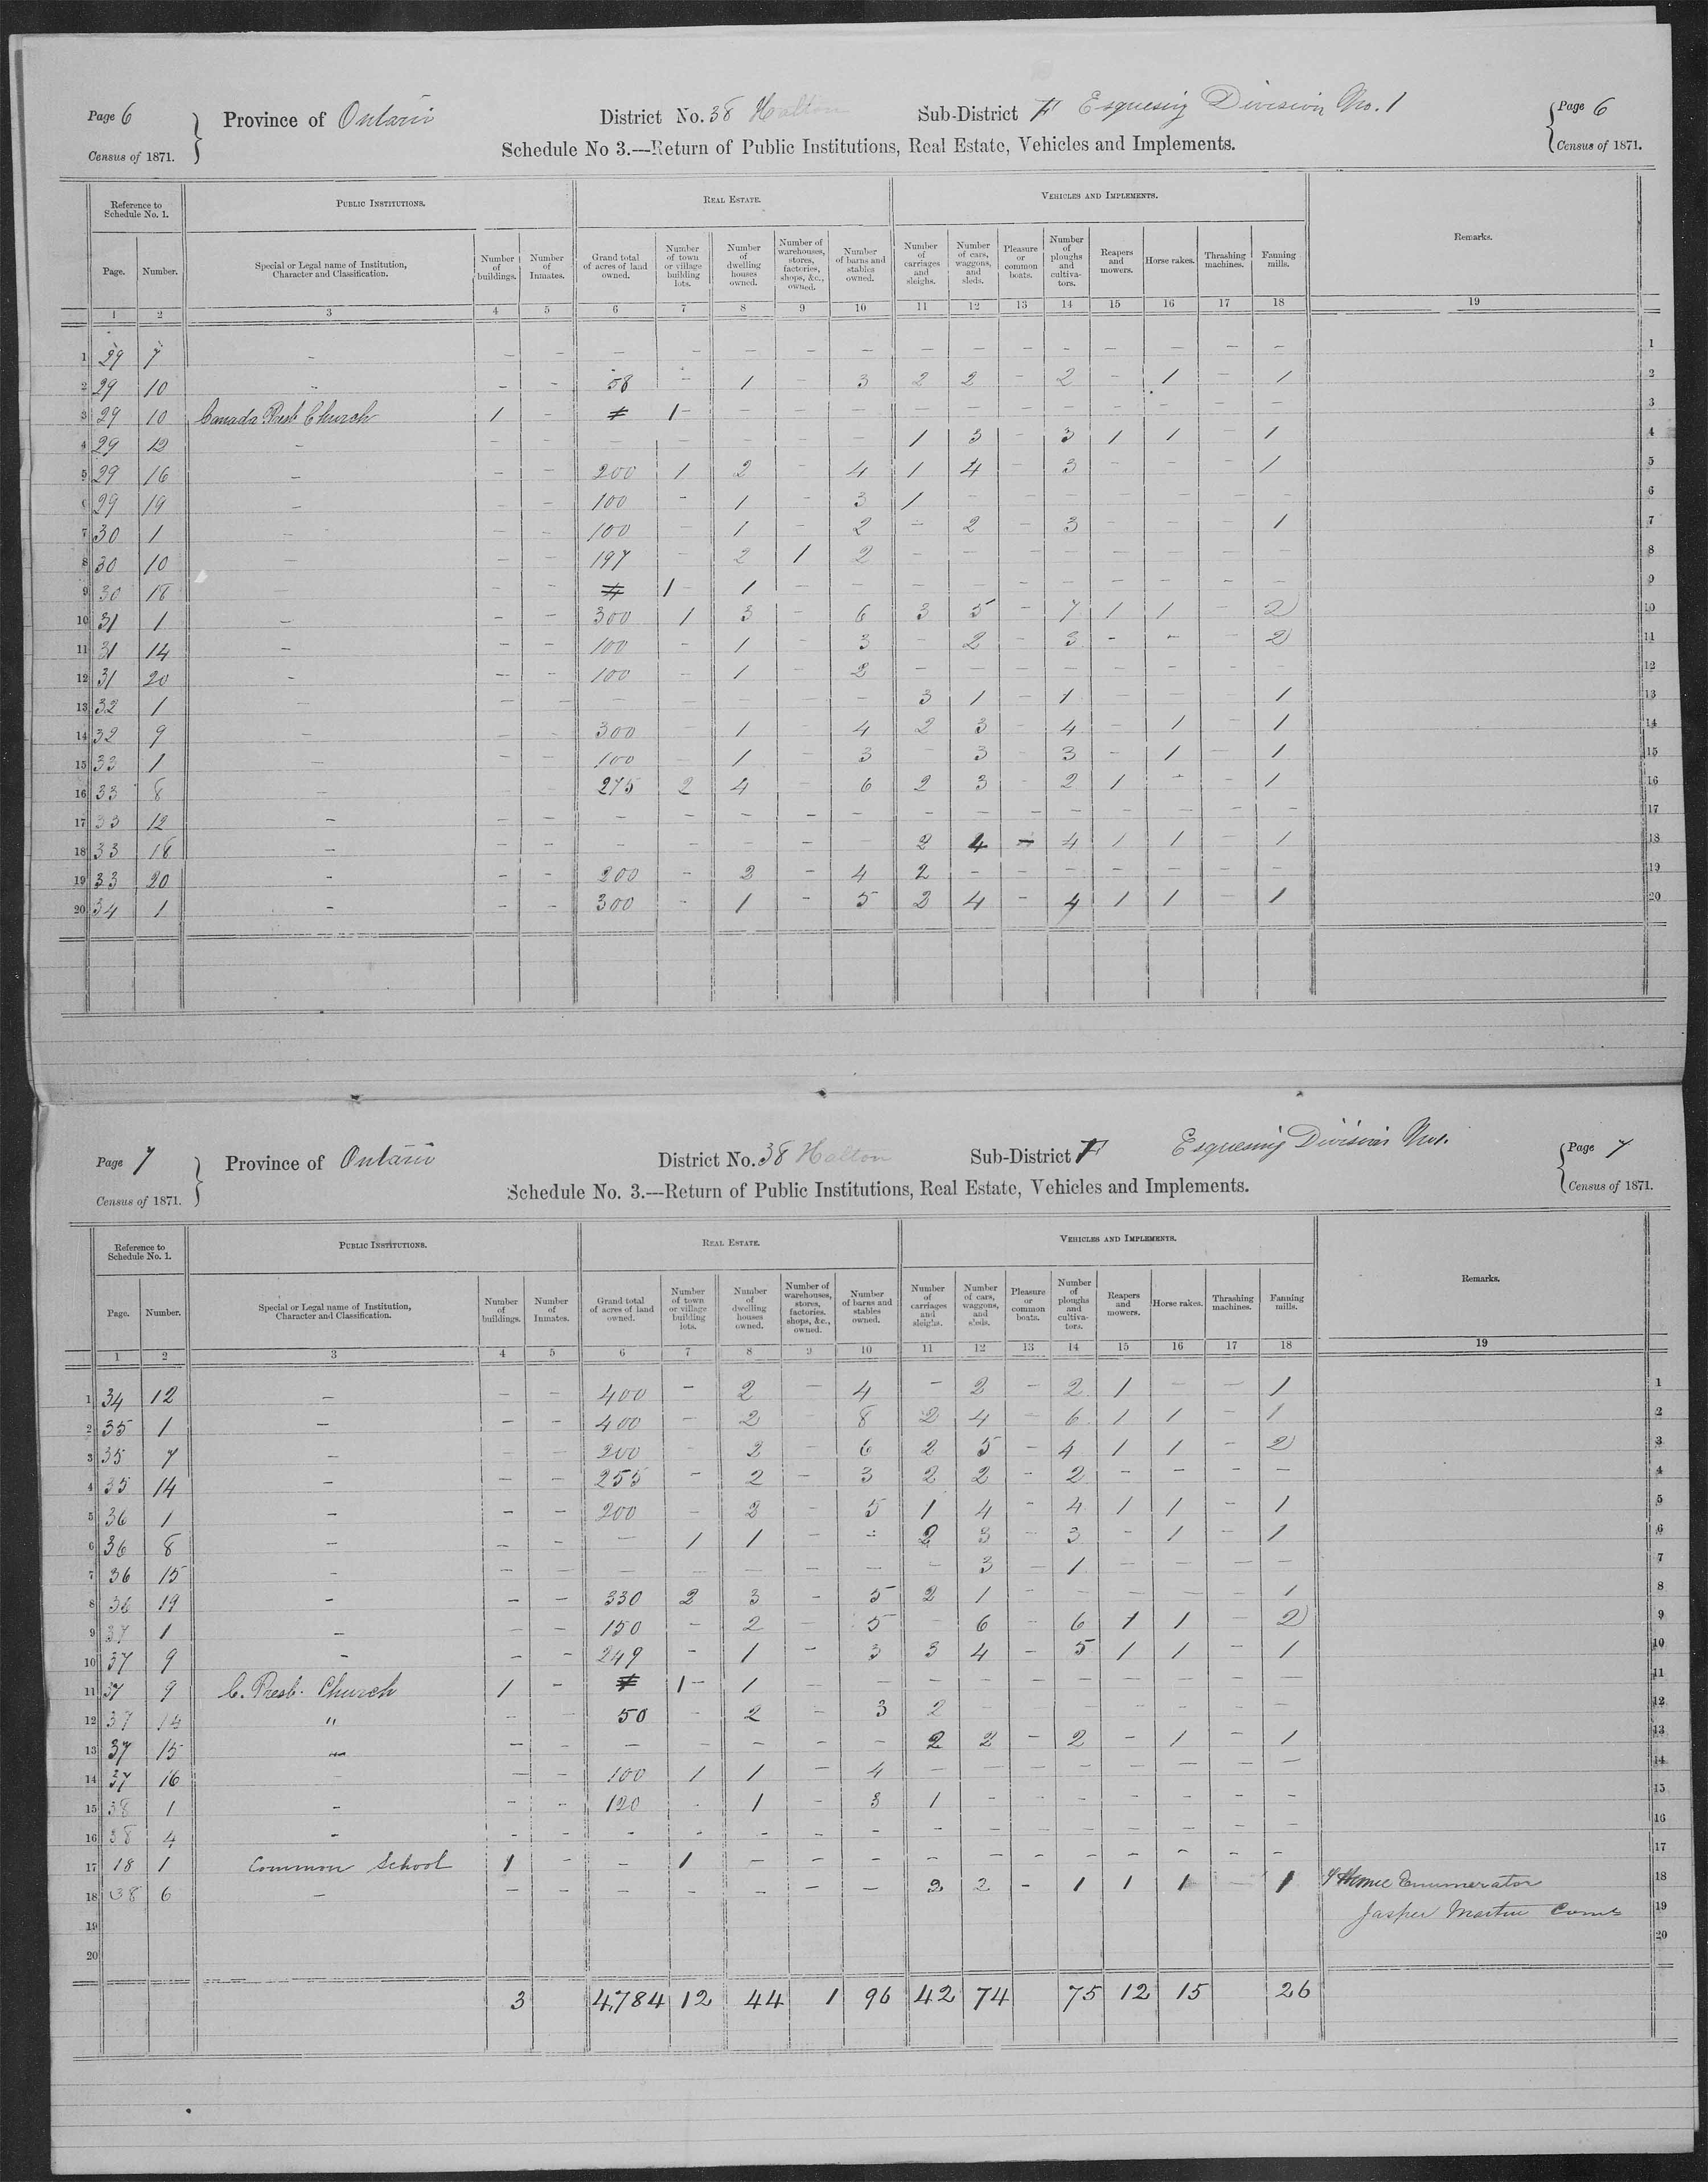 Page 6 Province of Ontario District No. 38 Halton Sub-District F Esquesing Division No. 1 Page 6
Census of 1871. Schedule No 3.---Return of Public Institutions, Real Estate, Vehicles and Implements. Census of 1871.
Reference to Schedule No. 1. PUBLIC INSTITUTIONS. REAL ESTATE. VEHICLES AND IMPLEMENTS. Remarks.
Page. Number. Special or Legal name of Institution, Character and Classification. Number of buildings. Number of Inmates. Grand total of acres of land owned. Number of town or village building lots. Number of dwelling houses owned. Number of warehouses, stores, factories, shops, &c., owned. Number of barns and stables owned. Number of carriages and sleighs. Number of cars, waggons, and sleds. Pleasure or common boats. Number of ploughs and cultiva-tors. Reapers and mowers. Horse rakes. Thrashing machines. Fanning mills.
1 2 3 4 5 6 7 8 9 10 11 12 13 14 15 16 17 18 19
1 29 7 - - - - - - - - - - - - - - - - 1
2 29 10 - - - 58 - 1 3 2 2 - 2 - 1 - 1 2
3 29 10 Canada Presb Church 1 - 1 - - - - - - - - - - - - 3
4 29 12 - - - - - - - 1 3 - 3 1 1 - 1 4
5 29 16 - - - 200 1 2 - 4 1 4 - 3 - - - 1 5
6 29 19 - - - 100 - 1 - 3 1 - - - - - - - 6
7 30 1 - - - 100 - 1 - 2 - 2 - 3 - - - 1 7
8 30 10 - - - 197 - 2 1 2 - - - - - - - - 8
9 30 18 - - - 1 - 1 - - - - - - - - - 9
10 31 1 - - - 300 1 3 - 6 3 5 - 7 1 1 - 2 10
11 31 14 - - - 100 - 1 - 3 - 2 - 3 - - - 2 11
12 31 20 - - - 100 - 1 - 2 - - - - - - - - 12
13 32 1 - - - - - - - - 3 1 - 1 - - 1 13
14 32 9 - - - 300 1 - 4 2 3 - 4 - 1 - 1 14
15 33 1 - - - 100 - 1 - 3 - 3 - 3 - 1 - 1 15
16 33 8 - 275 2 4 6 2 3 - 2 1 - - 1 16
17 33 12 - - - - - - - - - - - - - - - - 17
18 33 18 - - - - - - - - 2 4 - 4 1 1 - 1 18
19 33 20 - - - 200 - 2 - 4 2 - - - - - - - 19
20 34 1 - - - 300 - 1 - 5 2 4 - 4 1 1 - 1 20
Page 7 Province of Ontario District No. 38 Halton Sub-District F Esquesing Division No 1. Page 7
Census of 1871. Schedule No. 3.---Return of Public Institutions, Real Estate, Vehicles and Implements. Census of 1871.
Reference to Schedule No. 1. PUBLIC INSTITUTIONS. REAL ESTATE. VEHICLES AND IMPLEMENTS. Remarks.
Page. Number. Special or Legal name of Institution, Character and Classification. Number of buildings. Number of Inmates. Grand total of acres of land owned. Number of town or village building lots. Number of dwelling houses owned. Number of warehouses, stores, factories, shops, &c., owned. Number of barns and stables owned. Number of carriages and sleighs. Number of cars, waggons, and sleds. Pleasure or common boats. Number of ploughs and cultiva-tors. Reapers and mowers. Horse rakes. Thrashing machines. Fanning mills.
1 2 3 4 5 6 7 8 9 10 11 12 13 14 15 16 17 18 19
1 34 12 - - - 400 - 2 - 4 - 2 - 2 1 - - 1 1
2 35 1 - - - 400 - 2 8 2 4 - 6 1 1 - 1 2
3 35 7 - - - 200 - 2 6 2 5 - 4 1 1 - 2 3
4 35 14 - - - 255 - 2 - 3 2 2 - 2 - - - - 4
5 36 1 - - - 200 - 2 - 5 1 4 - 4 1 1 - 1 5
6 36 8 - - - - 1 1 - - 2 3 - 3 - 1 - 1 6
7 36 15 - - - - - - - - - 3 - 1 - - - - 7
8 36 19 - - - 330 2 3 - 5 2 1 - - - - - 1 8
9 37 1 - - - 150 - 2 - 5 - 6 - 6 1 1 - 2 9
10 37 9 - - - 249 - 1 - 3 3 4 - 5 1 1 - 1 10
11 37 9 C. Presb. Church 1 - 1 - 1 - - - - - - - - - - 11
12 37 14 " - - 50 - 2 - 3 2 - - - - - - - 12
13 37 15 " - - - - - - - 2 2 - 2 - 1 - 1 13
14 37 16 - - - 100 1 1 - 4 - - - - - - - - 14
15 38 1 - - - 120 - 1 - 3 1 - - - - - - - 15
16 38 4 - - - - - - - - - - - - - - - - 16
17 18 1 Common School 1 - - 1 - - - - - - - - - - - 17
18 38 6 - - - - - - - - 2 2 - 1 1 1 - 1 Enumerator 18
19 Jasper Martin Comr 19
20 20
3 4784 12 44 1 96 42 74 75 12 15 26